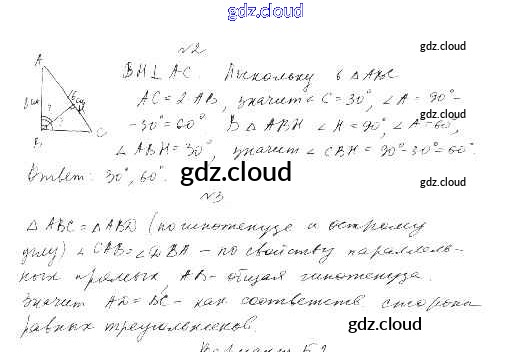 gdz.cloud
№2
gdz.cloud
BH⊥AC. Поскольку в ΔABC
AC=2AB, значит ∠C=30°, ∠A=90°-
-30°=60°. В ΔABH ∠H=90°, ∠A=60°,
gdz.cloud
∠ABH=30°, значит ∠CBH=90°-30°=60°.
Ответ: 30°, 60°.
gdz.cloud
gdz.cloud
№3
ΔABC=ΔABD (по гипотенузе и острому
углу) ∠CAB=∠DBA - по свойству параллель-
ных прямых, AB-общая гипотенуза.
gdz.cloud
Значит AD=BC - как соответств стороны
равных треугольников.
gdz.cloud